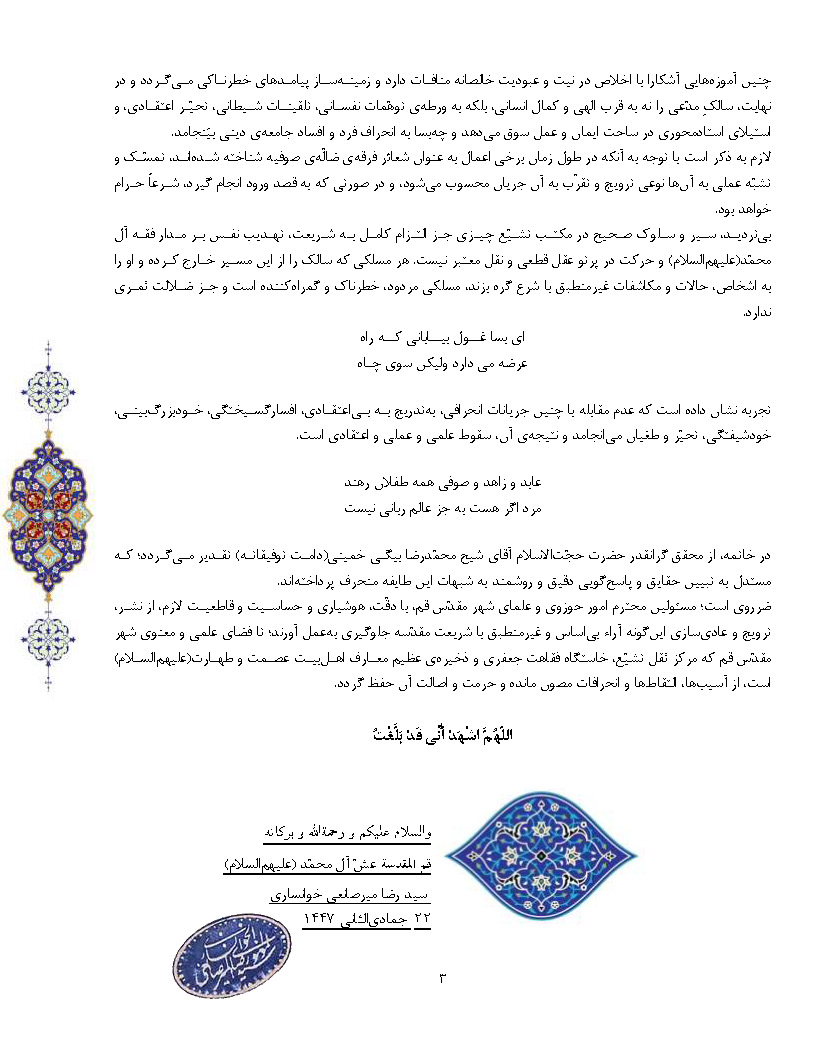 چنین آموزه‌هایی آشکارا با اخلاص در نیت و عبودیت خالصانه منافات دارد و زمینه‌ساز پیامدهای خطرناکی می‌گردد و در
نهایت، سالکِ مدّعی را نه به قرب الهی و کمال انسانی، بلکه به ورطه‌ی توهّمات نفسانی، تلقینات شیطانی، تحیّر اعتقادی، و
استیلای استادمحوری در ساحت ایمان و عمل سوق می‌دهد و چه‌بسا به انحراف فرد و افساد جامعه‌ی دینی بیَنجامد.
لازم به ذکر است با توجه به آنکه در طول زمان برخی اعمال به عنوان شعائر فرقه‌ی ضالّه‌ی صوفیه شناخته شده‌اند، تمسّک و
تشبّه عملی به آن‌ها نوعی ترویج و تقرّب به آن جریان محسوب می‌شود، و در صورتی که به قصد ورود انجام گیرد، شرعاً حرام
خواهد بود.
بی‌تردید، سیر و سلوک صحیح در مکتب تشیّع چیزی جز التزام کامل به شریعت، تهذیب نفس بر مدار فقه آل
محمّد(علیهم‌السلام) و حرکت در پرتو عقل قطعی و نقل معتبر نیست. هر مسلکی که سالک را از این مسیر خارج کرده و او را
به اشخاص، حالات و مکاشفات غیرمنطبق با شرع گره بزند، مسلکی مردود، خطرناک و گمراه‌کننده است و جز ضلالت ثمری
ندارد.
ای بسا غول بیابانی که راه
عرضه می دارد ولیکن سوی چاه
تجربه نشان داده است که عدم مقابله با چنین جریانات انحرافی، به‌تدریج به بی‌اعتقادی، افسارگسیختگی، خودبزرگ‌بینی،
خودشیفتگی، تحیّر و طغیان می‌انجامد و نتیجه‌ی آن، سقوط علمی و عملی و اعتقادی است.
عابد و زاهد و صوفی همه طفلان رهند
مرد اگر هست به جز عالم ربانی نیست
در خاتمه، از محقق گرانقدر حضرت حجّت‌الاسلام آقای شیخ محمّدرضا بیگی خمینی(دامت توفیقاته) تقدیر می‌گردد؛ که
مستدل به تبیین حقایق و پاسخ‌گویی دقیق و روشمند به شبهات این طایفه منحرف پرداخته‌اند.
ضرروی است؛ مسئولین محترم امور حوزوی و علمای شهر مقدّس قم، با دقّت، هوشیاری و حساسیت و قاطعیت لازم، از نشر،
ترویج و عادی‌سازی این‌گونه آراء بی‌اساس و غیرمنطبق با شریعت مقدّسه جلوگیری به‌عمل آورند؛ تا فضای علمی و معنوی شهر
مقدّس قم که مرکز ثقل تشیّع، خاستگاه فقاهت جعفری و ذخیره‌ی عظیم معارف اهل‌بیت عصمت و طهارت(علیهم‌السلام)
است، از آسیب‌ها، التقاط‌ها و انحرافات مصون مانده و حرمت و اصالت آن حفظ گردد.
اللّهُمَّ اشْهَدْ أَنّی قَدْ بَلَّغْتُ
والسلام علیکم و رحمةالله و برکاته
قم المقدسة عشّ آل محمّد (علیهم‌السلام)
سید رضا میرصانعی خوانساری
۲۲ جمادی‌الثانی ۱۴۴۷
۳